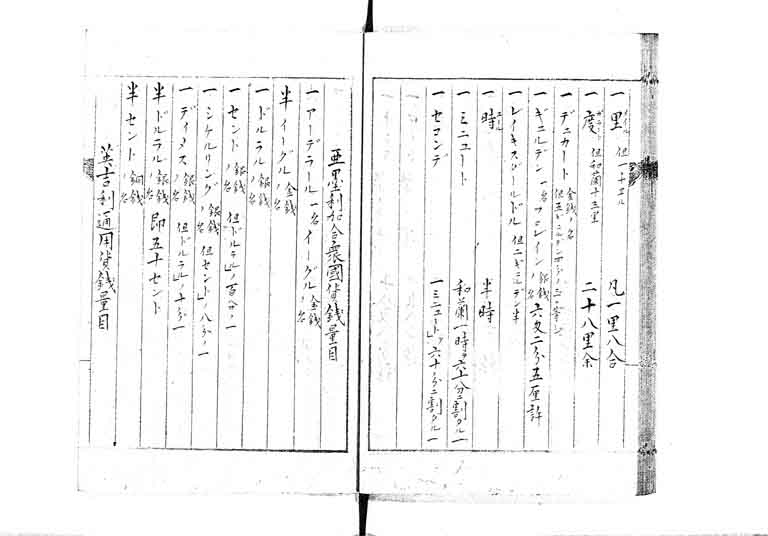 一里 ミイル 但一十エル 凡一里八合
一度 但和蘭十五里 二十八里余
一デュカート 金銭ノ名
一ギュルデン 一名フロレイン 銀銭ノ名 六匁二分五厘許
一レイキスダールドル 但二ギュルデン半
一時 半時
一ミニュート 和蘭一時ヲ六十分ニ割タル一
一セコンデ 一ミニュートヲ六十分ニ割タル一
亜墨利加合衆國貨銭量目
一アーデラール 一名イーグル 金銭ノ名
半イーグル 金銭ノ名
一ドルラル 銀銭ノ名
一セント 銀銭ノ名 但ドルラルノ百分ノ一
一シケルリング 銀銭ノ名 但セントノ八分ノ一
一ディメス 銀銭ノ名 但ドルラルノ十分一
半ドルラル 銀銭ノ名 即五十セント
半セント 銅銭ノ名
英吉利通用貨銭量目